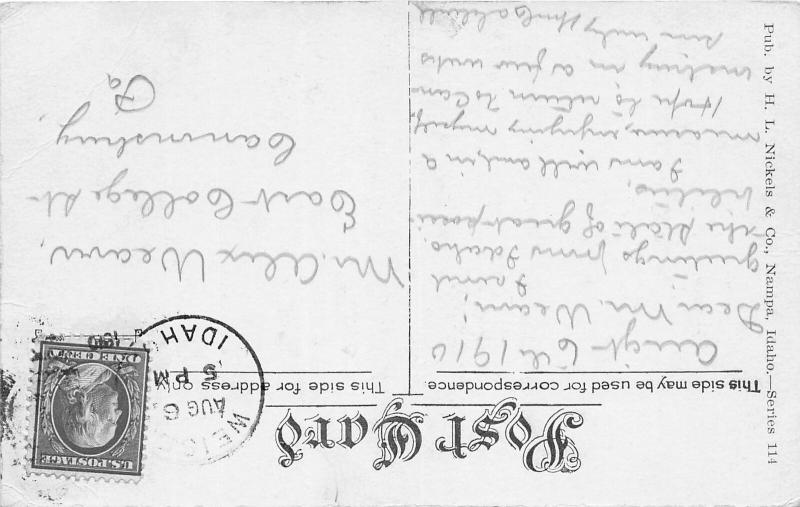 Post Card
This side may be used for correspondence.
This side for address only.
Pub. by H. L. Nickels & Co., Nampa, Idaho.—Series 114
WEISER
AUG 6
5 PM
1910
IDAHO
U.S. POSTAGE
ONE CENT
August 6th 1910
Dear Mr. Weam;
I send
greetings from Idaho,
the State of great possi
bilities,
I am well and, in a
measure, enjoying myself,
Hope to return to Can-
in a few weeks
Mr. Alex Weam,
East College St.
Canonsburg,
Pa